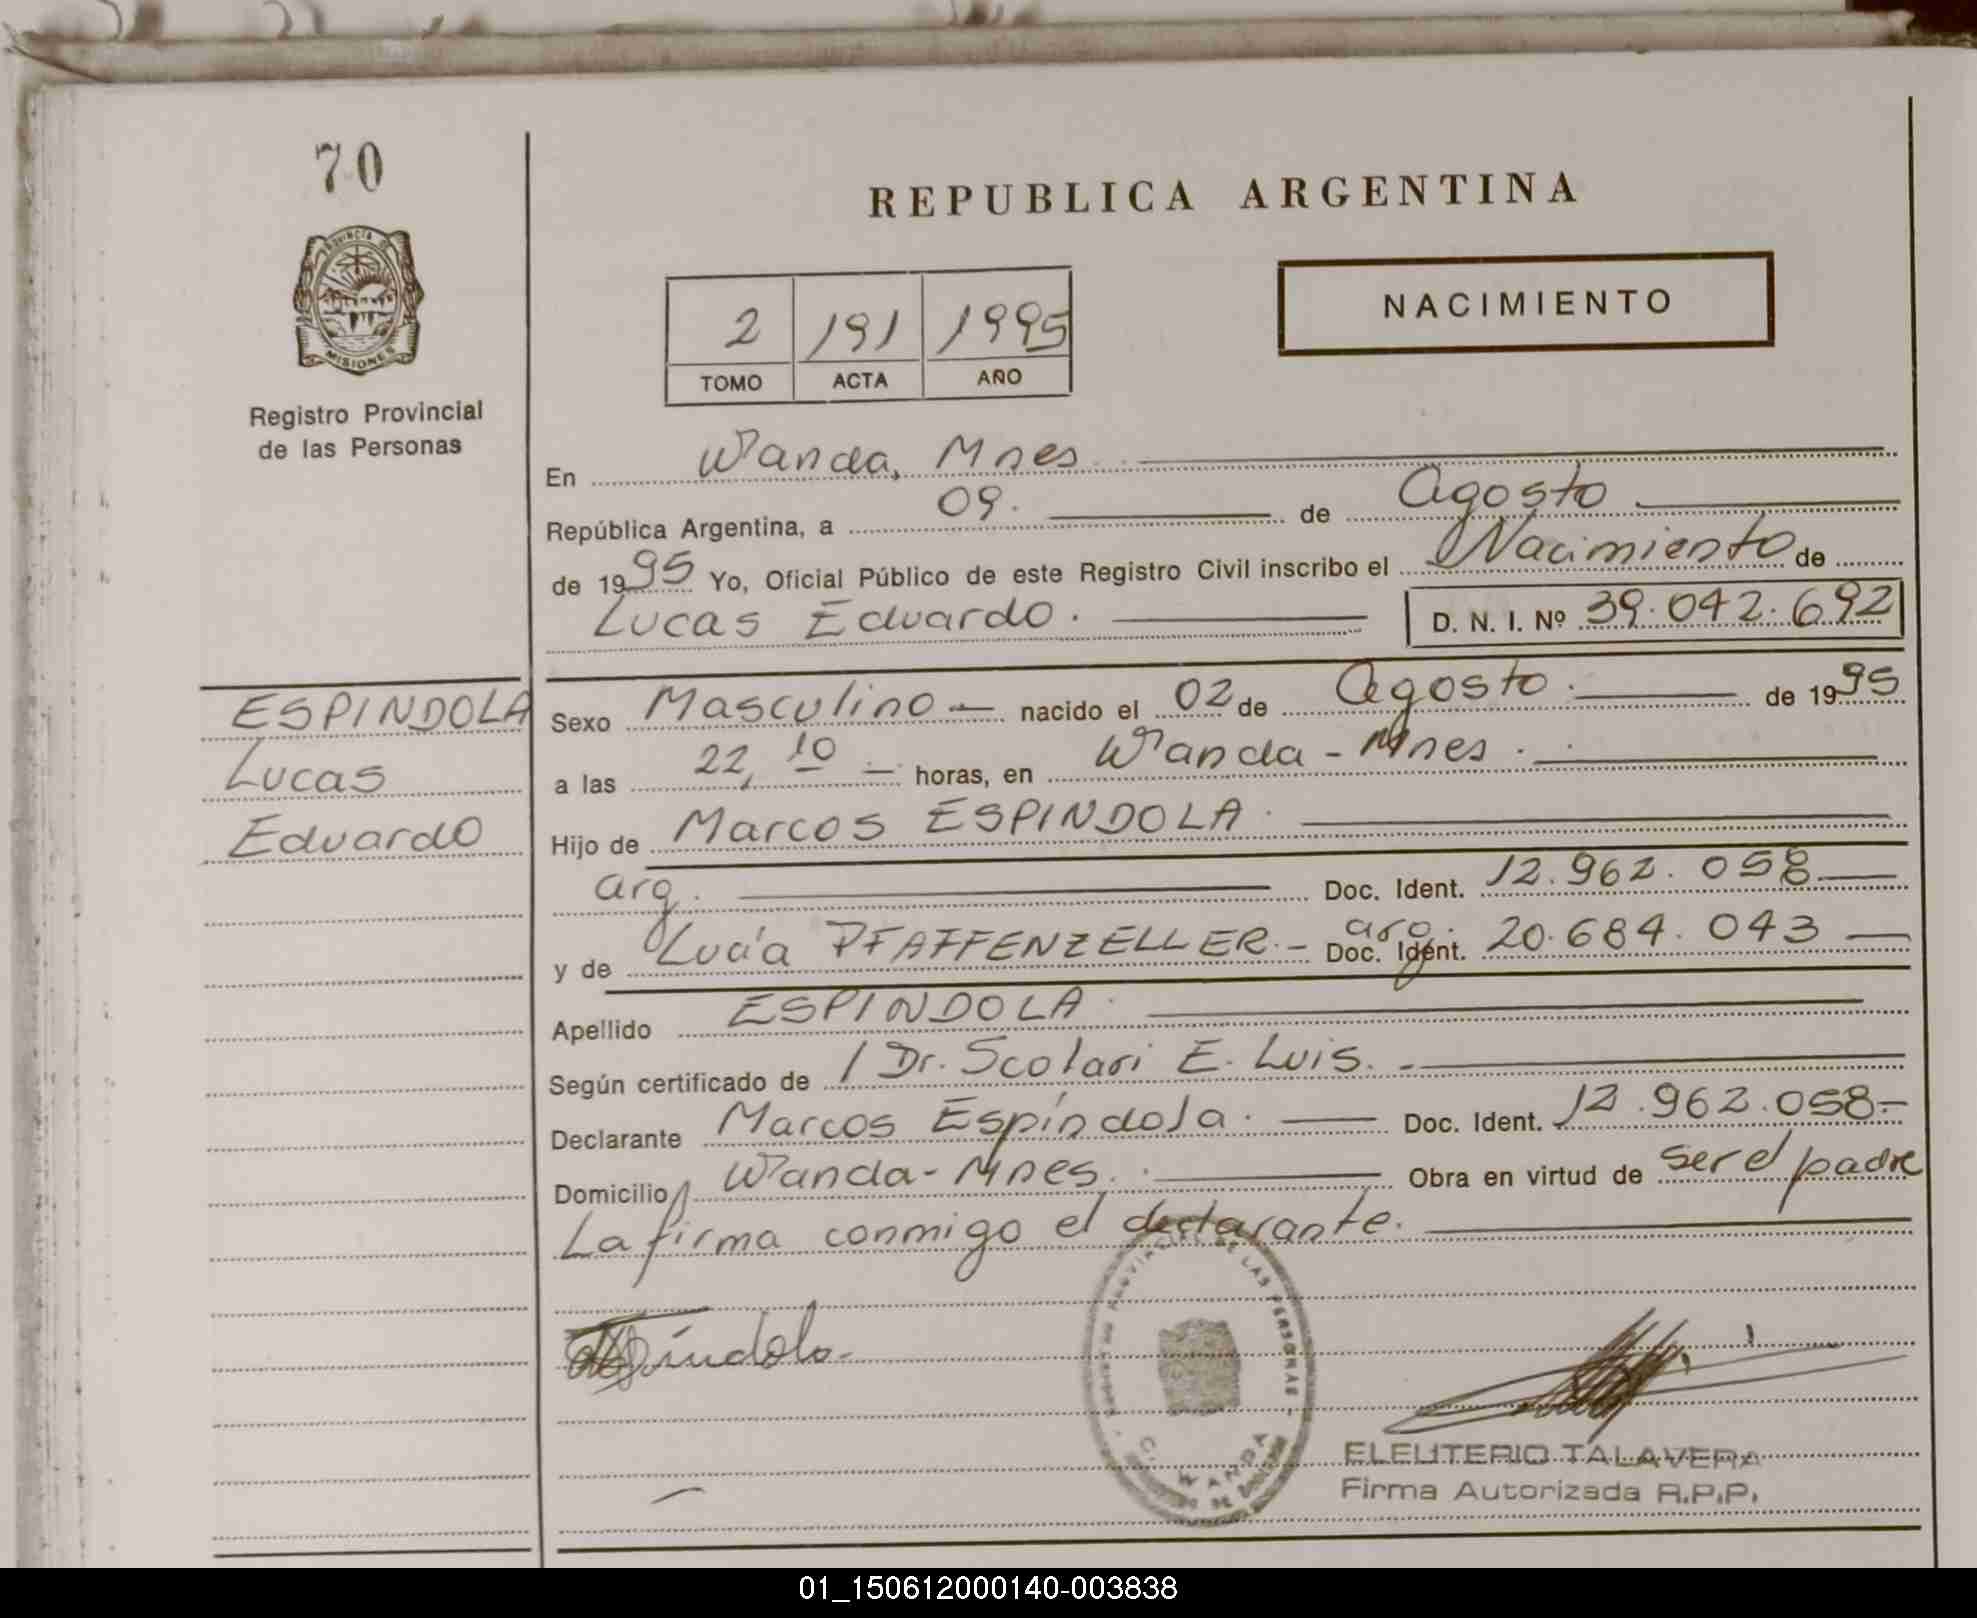 70
PROVINCIA DE
MISIONES
Registro Provincial
de las Personas
REPUBLICA ARGENTINA
2 191 1995
TOMO ACTA AÑO
NACIMIENTO
En Wanda, Mnes.
República Argentina, a 09. de Agosto
de 1995 Yo, Oficial Público de este Registro Civil inscribo el Nacimiento de
Lucas Eduardo. D. N. I. Nº 39.042.692
ESPINDOLA
Lucas
Eduardo
Sexo Masculino nacido el 02 de Agosto. de 1995
a las 22,10 horas, en Wanda - Mnes.
Hijo de Marcos ESPINDOLA.
arg. Doc. Ident. 12.962.058
y de Lucía PFAFFENZELLER.- arg. Doc. Ident. 20.684.043
Apellido ESPINDOLA.
Según certificado de / Dr. Scolari E. Luis.
Declarante Marcos Espíndola. Doc. Ident. 12.962.058-
Domicilio Wanda - Mnes. Obra en virtud de ser el padre
La firma conmigo el declarante.
Espíndola
DE LAS PERSONAS
WANDA
ELEUTERIO TALAVERA
Firma Autorizada R.P.P.
01_150612000140-003838